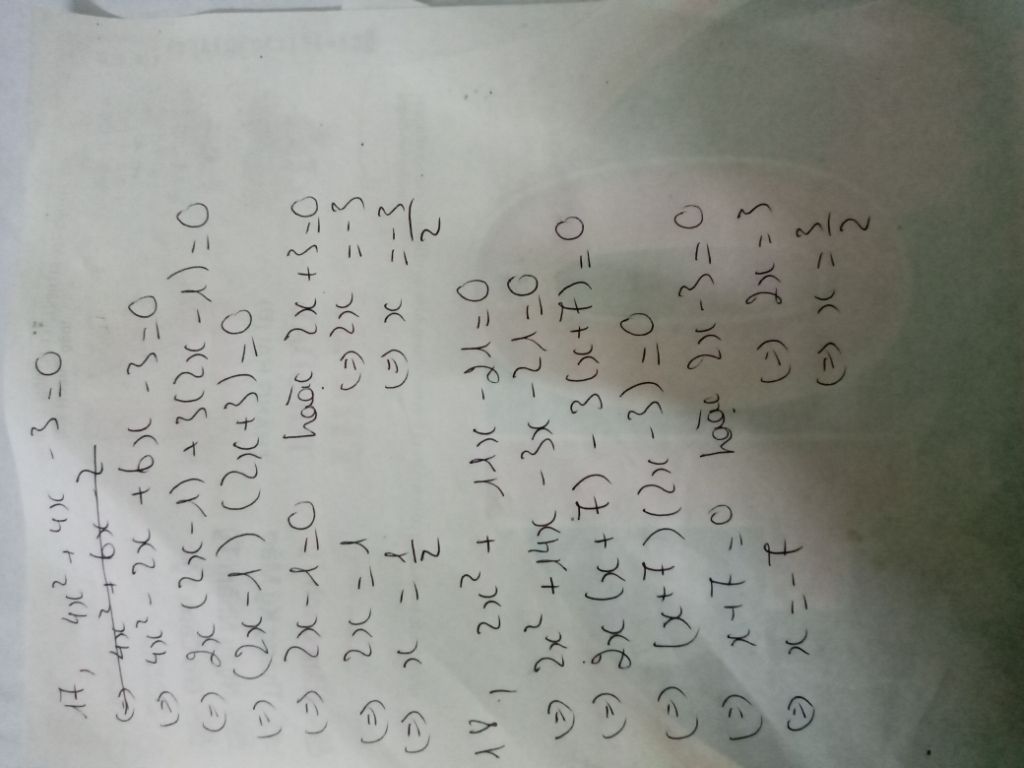 17, 4x² + 4x - 3 = 0
(=) 4x² - 2x + 6x - 3 = 0
(=) 2x (2x - 1) + 3(2x - 1) = 0
(=) (2x - 1) (2x + 3) = 0
(=) 2x - 1 = 0 hoặc 2x + 3 = 0
(=) 2x = 1 (=) 2x = -3
(=) x = 1/2 (=) x = -3/2
18. 2x² + 11x - 21 = 0
(=) 2x² + 14x - 3x - 21 = 0
(=) 2x (x + 7) - 3(x + 7) = 0
(=) (x + 7) (2x - 3) = 0
(=) x + 7 = 0 hoặc 2x - 3 = 0
(=) x = -7 (=) 2x = 3
(=) x = 3/2